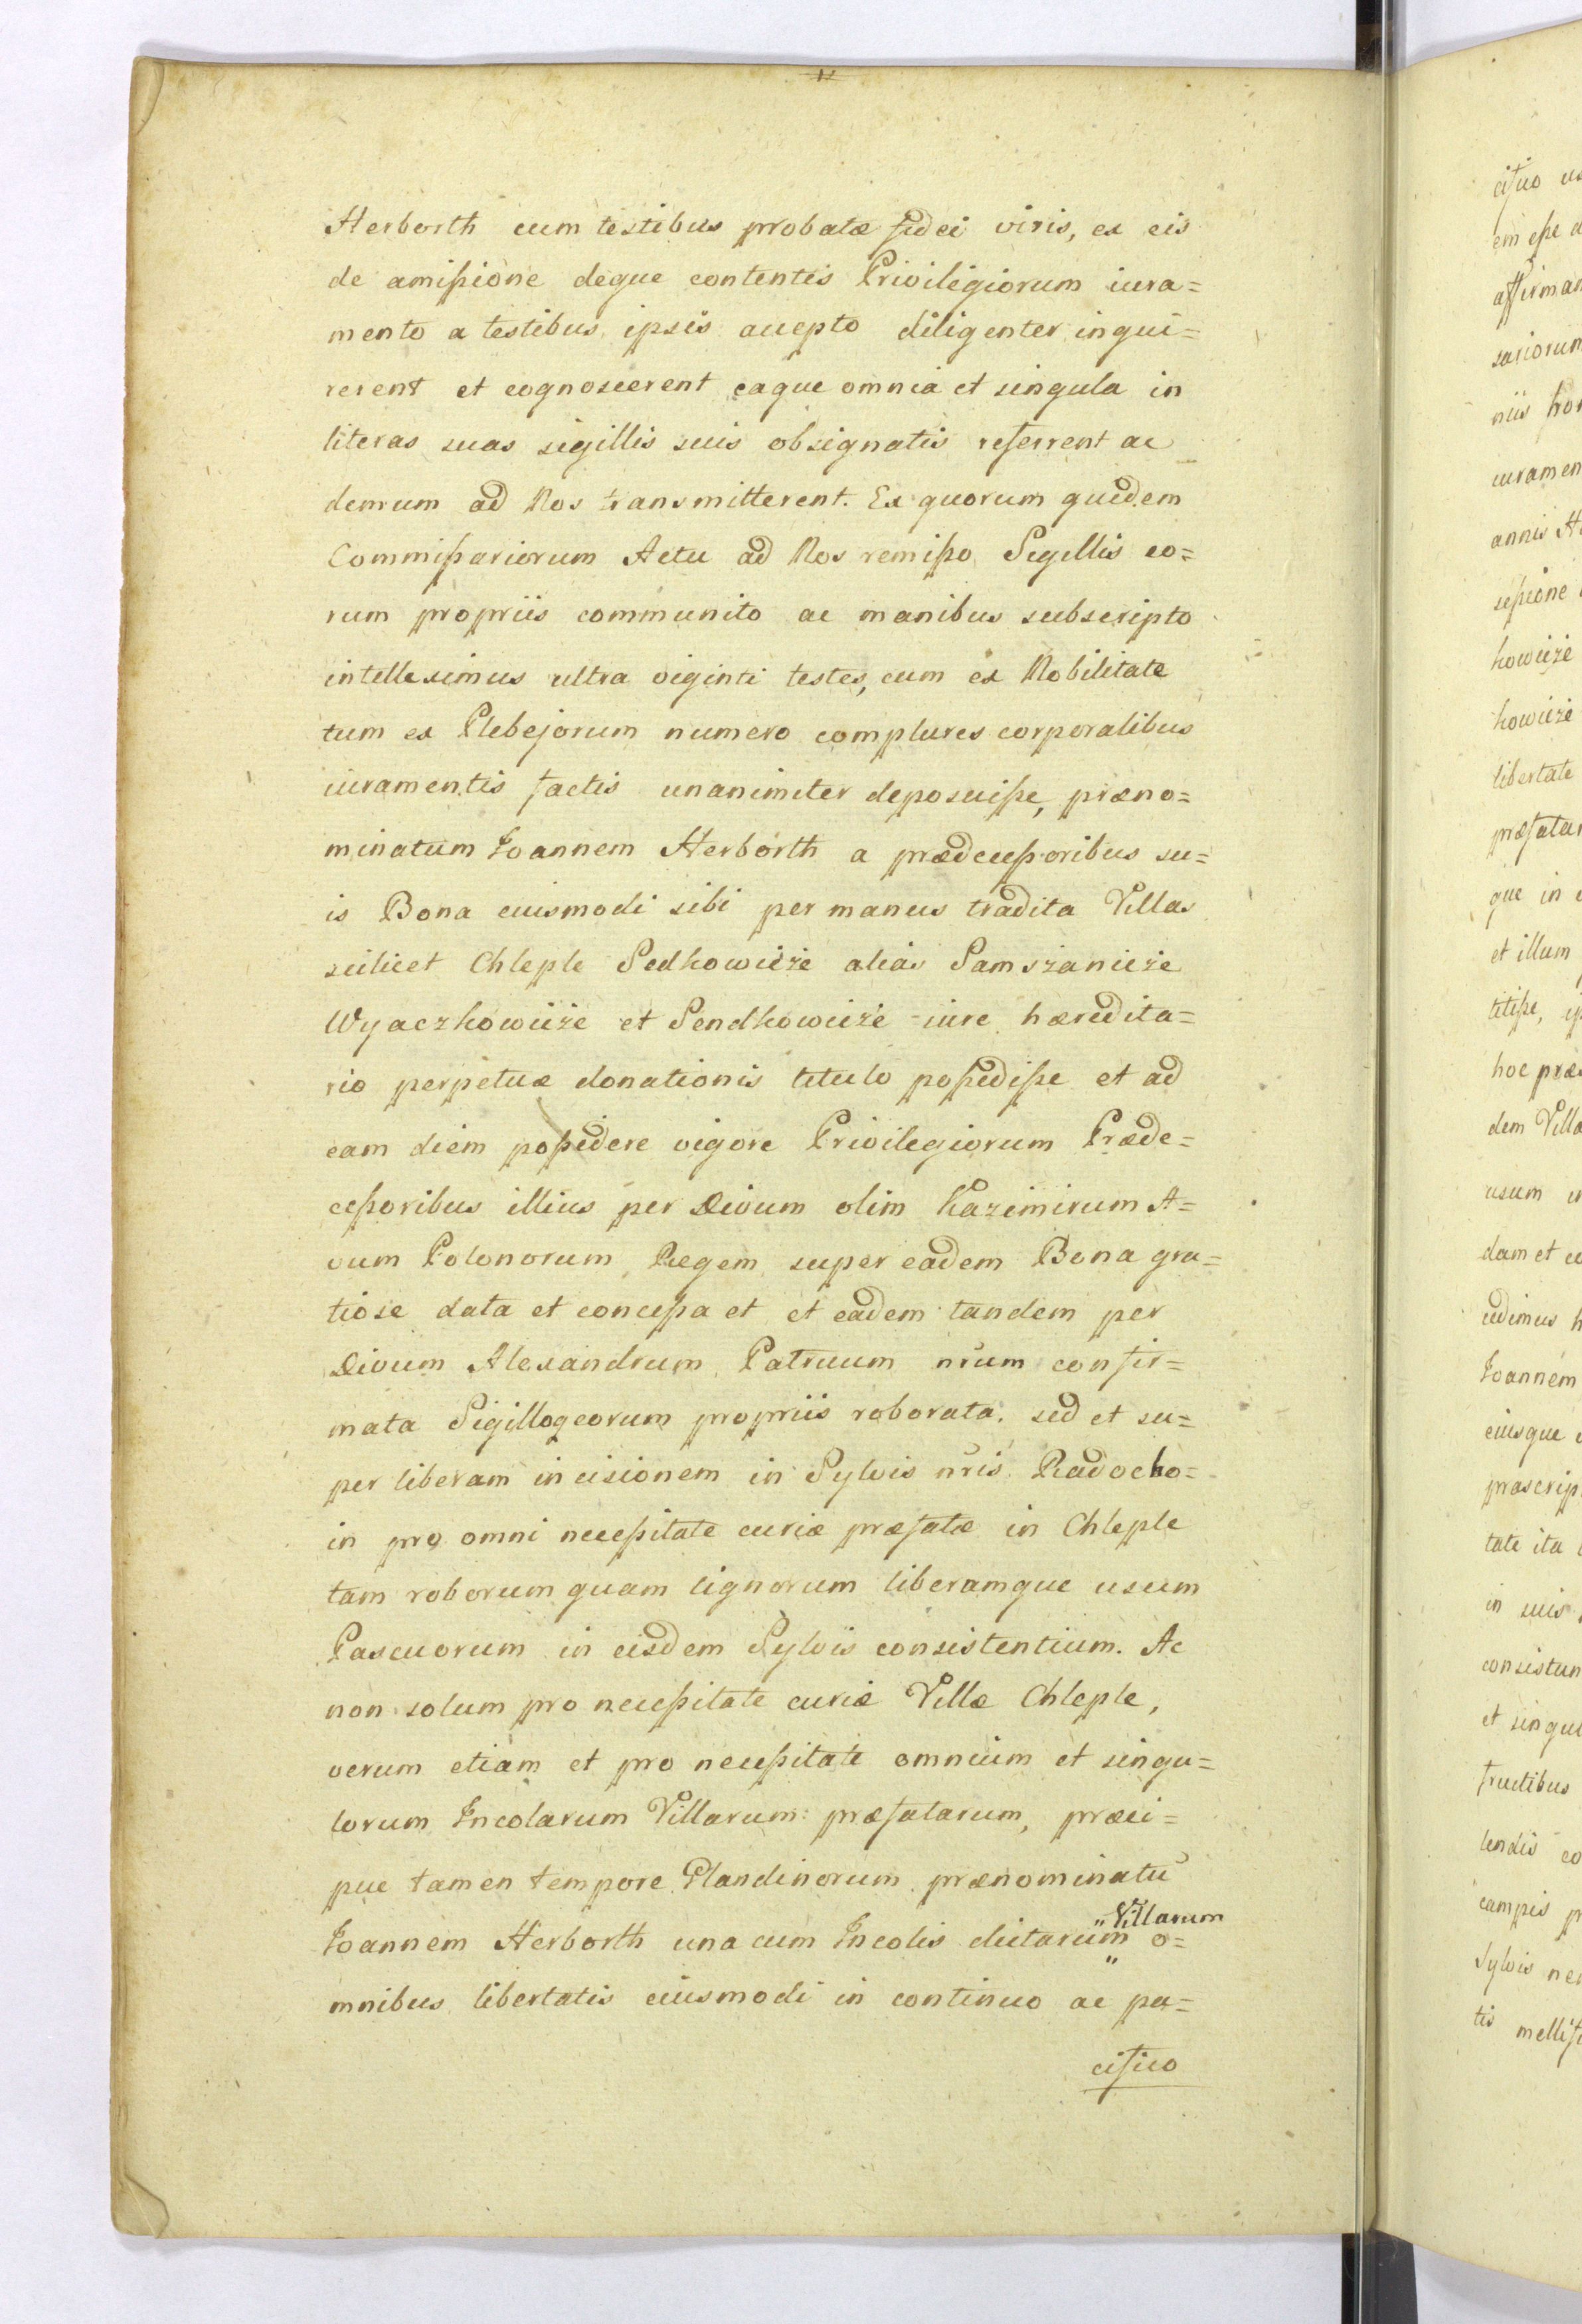 Herborth cum testibus probatæ fidei viris, ex eis
de amissione deque contentis Privilegiorum iura=
mento a testibus ipsis accepto diligenter inqui=
rerent et cognoscerent eaque omnia et singula in
literas suas sigillis suis obsignatis referrent ac
demum ad Nos transmitterent. Ex quorum quidem
Commissariorum Actu ad Nos remisso Sigillis eo=
rum propriis communito ac manibus subscripto
intelleximus ultra viginti testes, cum ex Nobilitate
tum ex Plebejorum numero complures corporalibus
iuramentis factis unanimiter deposuisse, præno=
minatum Ioannem Herborth a prædecessoribus su=
is Bona eiusmodi sibi per manus tradita Villas
scilicet Chleple Sedkowicże alias Samszanicże
Wyaczkowicże et Sendkowicże iure hæredita=
rio perpetuæ donationis titulo possedisse et ad
eam diem possidere vigore Privilegiorum Præde=
cessoribus illius per Divum olim Kazimirum A=
vum Polonorum Regem super eadem Bona gra=
tiose data et concessa et et eadem tandem per
Divum Alexandrum Patruum nrum confir=
mata Sigilloqeorum propriis roborata. sed et su=
per liberam incisionem in Sylvis nris Radocho=
in pro omni necessitate curiæ præfatæ in Chleple
tam roborum quam lignorum liberamque usum
Pascuorum in eisdem Sylvis consistentium. Ac
non solum pro necessitate curiæ Villæ Chleple,
verum etiam et pro necessitate omnium et singu=
lorum Incolarum Villarum præfatarum, præci=
pue tamen tempore Glandinorum prænominatū
Villarum
Ioannem Herborth una cum Incolis dictarum o=
mnibus libertatis eiusmodi in continuo ac pa=
cifico